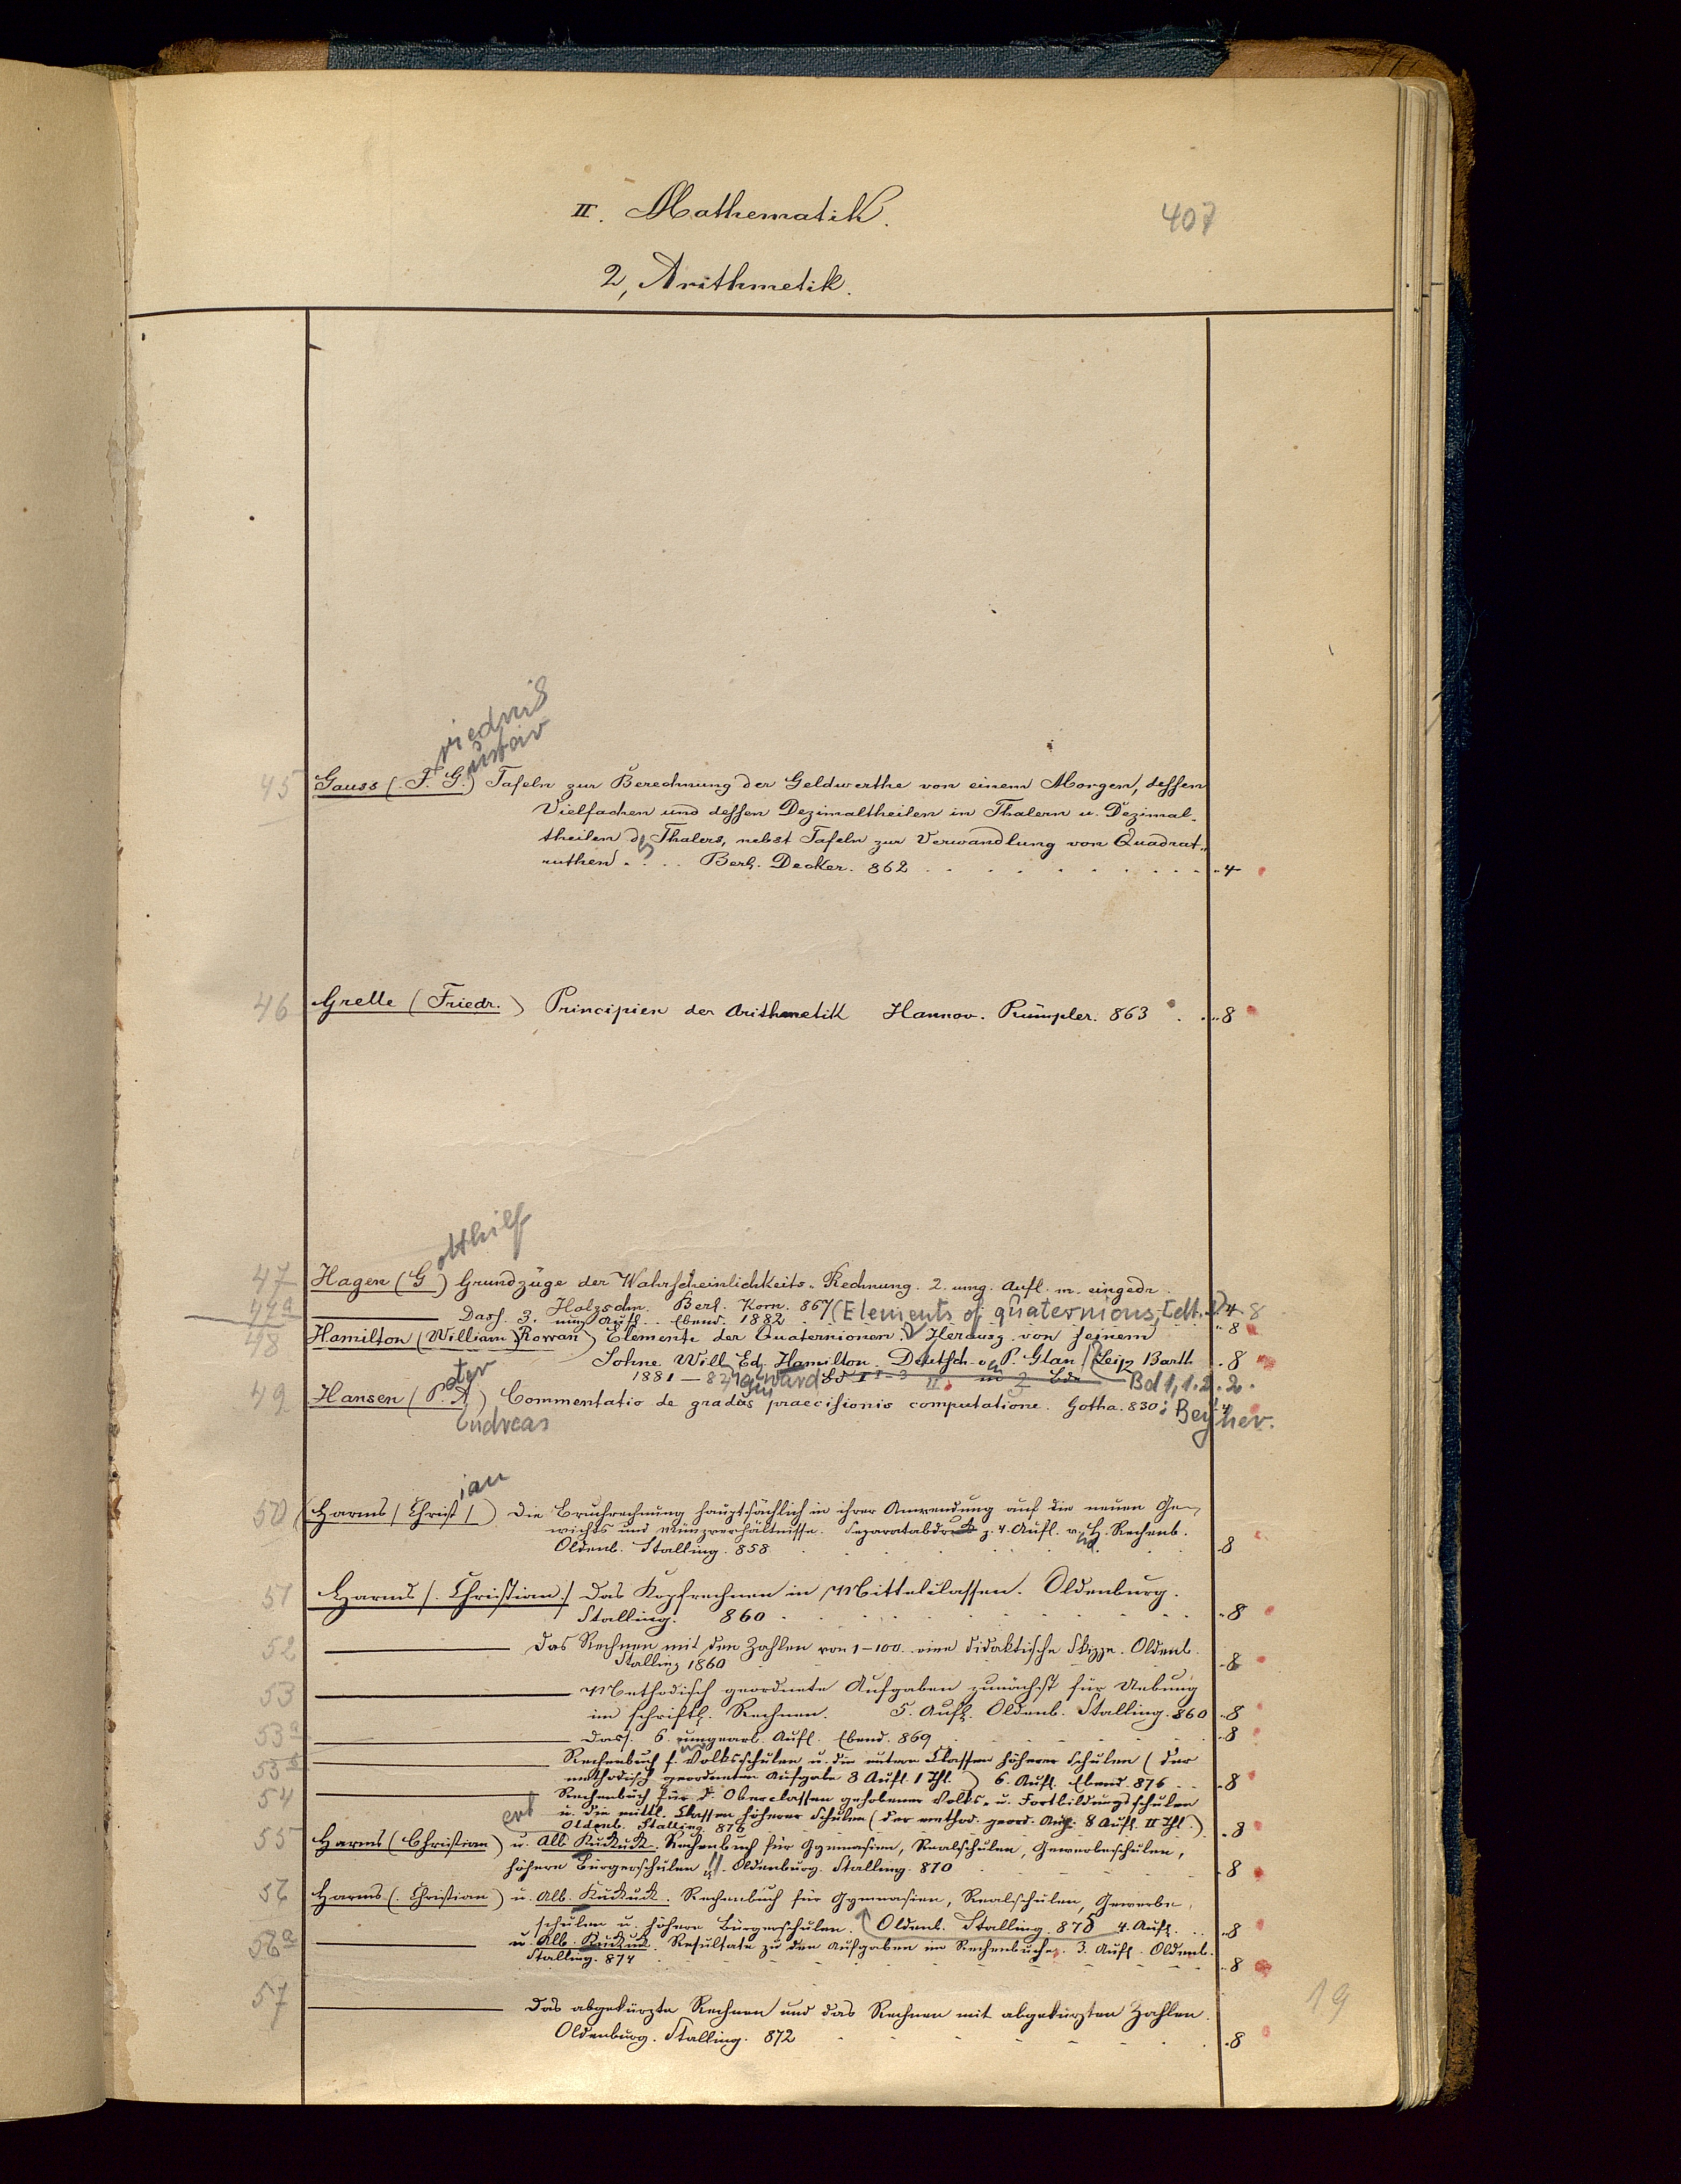 II. Mathematik.
407
2, Arithmetik.
riedrich
ustav
45 Gauss (. F. G.) Tafeln zur Berechnung der Geldwerthe von einem Morgen, dessen
Vielfachen und dessen Dezimaltheilen in Thalern u. Dezimal-
theilen ds Thalers, nebst Tafeln zur Verwandlung von Quadrat-
ruthen . . . . Berl. Decker. 862 . . . . . . . . . . 4
46 Grelle (Friedr.) Principien der Arithmetik Hannov. Rümpler. 863 . . 8
otthilf
47 Hagen (G ) Grundzüge der Wahrscheinlichkeits-Rechnung. 2. umg. Aufl. m. eingedr.
Holzschn. Berl. Korn. 867 (Elements of quaternions, [dt.]) 4 8
47a Dass. 3. umg. Aufl. . Ebend. 1882 . . 8
48 Hamilton (William Rowan) Elemente der Quaternionen. Herausg. von seinem
Sohne Will. Ed. Hamilton. Deutsch v. P. Glan. Leipz Barth . 8
1881 – 84 ward Bd 1, 1. 2. 2.
eter
49 Hansen (P. A.) Commentatio de gradus praecisionis computatione. Gotha. 830: Beyher. 4
Andreas
ian
50 (Harms / Christ /) Die Bruchrechnung hauptsächlich in ihrer Anwendung auf die neuen Ge-
wichts und Münzverhältnisse. Separatabdruck z. 4. Aufl. v. H. Rechenb.
Oldenb. Stalling. 858 8
51 Harms /. Christian./ Das Kopfrechnen in Mittelclassen. Oldenburg.
Stalling. 860 . . . . . . . 8
52 Das Rechnen mit den Zahlen von 1–100. eine didaktische Skizze. Oldenb.
Stalling 1860 8
53 Methodisch geordnete Aufgaben zunächst für Uebung
im schriftl. Rechnen. 5. Aufl. Oldenb. Stalling. 860 . 8
53a Dass. 6. umgearb. Aufl. Ebend. 869 8
53b Rechenbuch f. Volksschulen u. die untern Classen höherer Schulen (der
methodisch geordneten Aufgabe 8 Aufl. 1 Thl.) 6. Aufl. Ebend. 876 . . 8
54 Rechenbuch für d. Oberclassen gehobener Volks- u. Fortbildungsschulen
u. die mittl. Classen höherer Schulen (der method. geord. Aufg. 8 Aufl. II Thl.)
Oldenb. Stalling. 876 8
ert
55 Harms (Christian) u. Alb Kukuck. Rechenbuch für Gymnasien, Realschulen, Gewerbeschulen,
höhere Bürgerschulen. Oldenburg. Stalling. 870 8
56 Harms (. Christian) u. Alb. Kukuck. Rechenbuch für Gymnasien, Realschulen, Gewerbe-
schulen u. höhere Bürgerschulen. Oldenb. Stalling. 875 4. Aufl. . . 8
56a u. Alb. Kukuck. Resultate zu den Aufgaben im Rechenbuche. 3. Aufl. Oldenb.
Stalling. 874 8
57 Das abgekürzte Rechnen und das Rechnen mit abgekürzten Zahlen.
Oldenburg. Stalling. 872 8
19